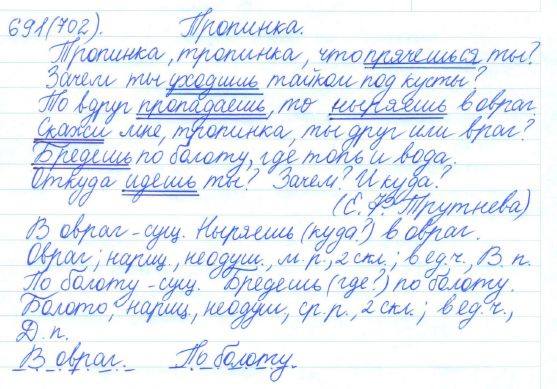 691(702). Тропинка.
Тропинка, тропинка, что прячешься ты?
Зачем ты уходишь тайком под кусты?
То вдруг пропадаешь, то ныряешь в овраг.
Скажи мне, тропинка, ты друг или враг?
Бредешь по болоту, где топь и вода.
Откуда идешь ты? Зачем? И куда?
(Е. Ф. Трутнева)
В овраг - сущ. Ныряешь (куда?) в овраг.
Овраг; нариц., неодуш., м. р., 2 скл.; в ед. ч., В. п.
По болоту - сущ. Бредешь (где?) по болоту.
Болото, нариц., неодуш., ср. р., 2 скл.; в ед. ч.,
Д. п.
В овраг. По болоту.